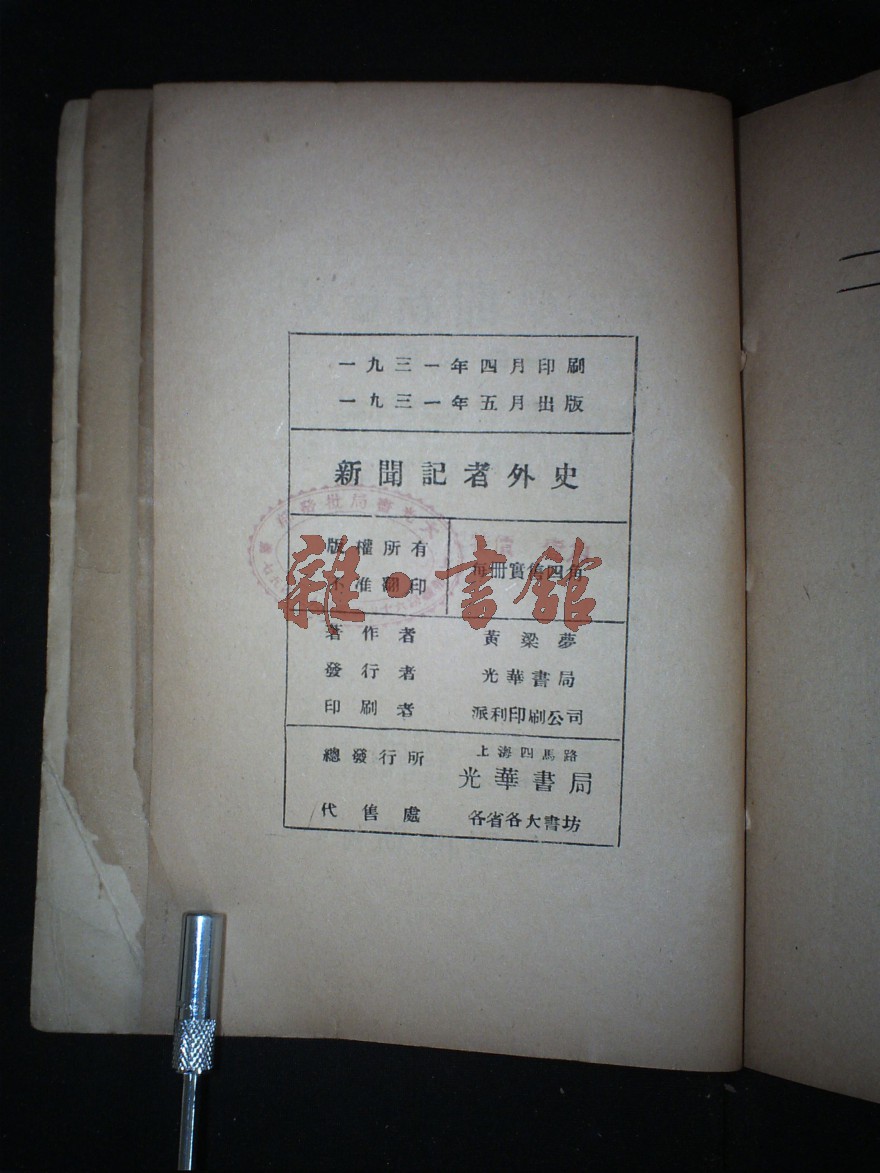 一九三一年四月印刷
一九三一年五月出版
新聞記者外史
版權所有
不准翻印
每冊實售四角
著作者 黃梁夢
發行者 光華書局
印刷者 派利印刷公司
總發行所 上海四馬路
光華書局
代售處 各省各大書坊
雜·書館